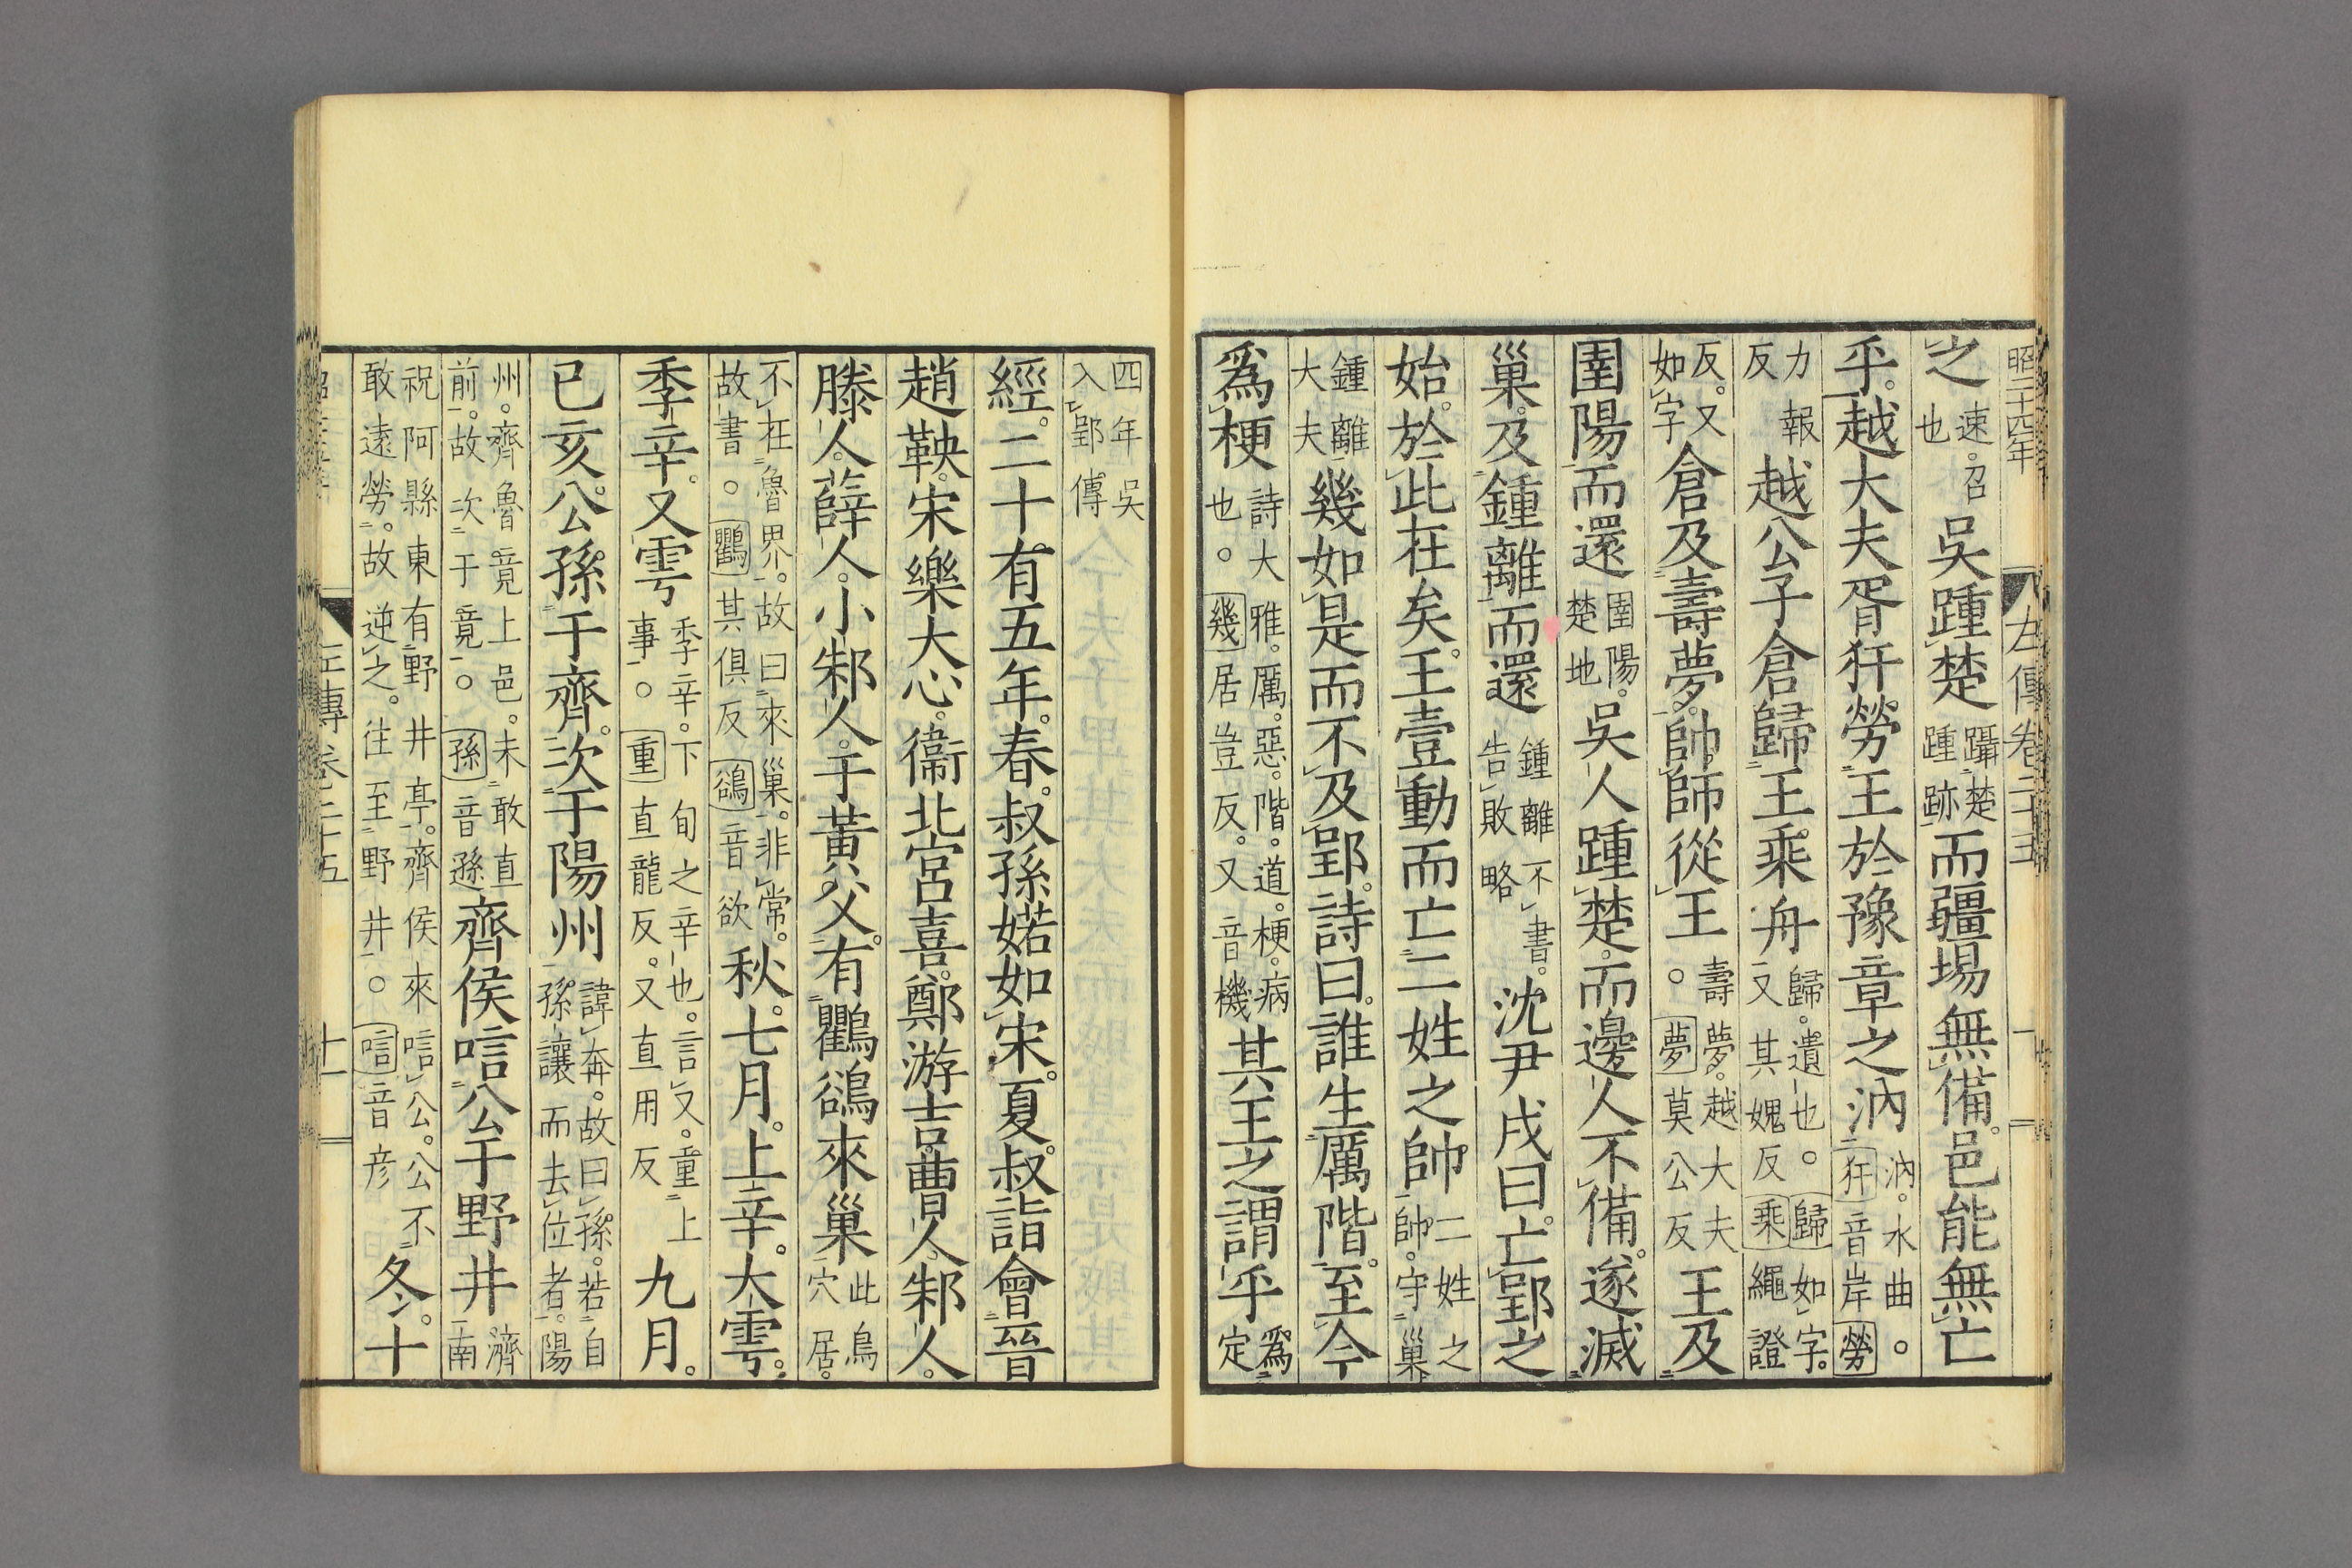 昭二十四年 左傳卷二十五
之速召也吳踵楚躡楚踵跡而疆埸無備。邑能無亡
乎。越大夫胥犴勞王於豫章之汭汭。水曲。犴音岸勞
力報反越公子倉歸王乘舟歸。遺也。歸如字。又其媿反乘繩證
反。又如字倉及壽夢。帥師從王壽夢。越大夫。夢莫公反王及
圉陽而還圉陽。楚地吳人踵楚。而邊人不備。遂滅
巢。及鍾離而還鍾離不書。告敗略沈尹戌曰。亡郢之
始。於此在矣。王壹動而亡二姓之帥二姓之帥。守巢
鍾離大夫幾如是而不及郢。詩曰。誰生厲階。至今
爲梗詩大雅。厲。惡。階。道。梗。病也。幾居豈反。又音機其王之謂乎爲定
四年吳入郢傳
經。二十有五年。春。叔孫婼如宋。夏。叔詣會晉
趙鞅。宋樂大心。衞北宮喜。鄭游吉。曹人。邾人。
滕人。薛人。小邾人。于黃父。有鸜鵒來巢此鳥穴居。
不在魯界。故曰來巢。非常。故書。鸜其俱反鵒音欲秋。七月。上辛。大雩。
季辛。又雩季辛。下旬之辛也。言又。重上事。重直龍反。又直用反九月。
已亥。公孫于齊。次于陽州諱奔。故曰孫。若自孫讓而去位者。陽
州。齊魯竟上邑。未敢直前。故次于竟。孫音遜齊侯唁公于野井濟南
祝阿縣東有野井亭。齊侯來唁公。公不敢遠勞。故逆之。往至野井。唁音彦冬。十
左傳卷二十五 十一